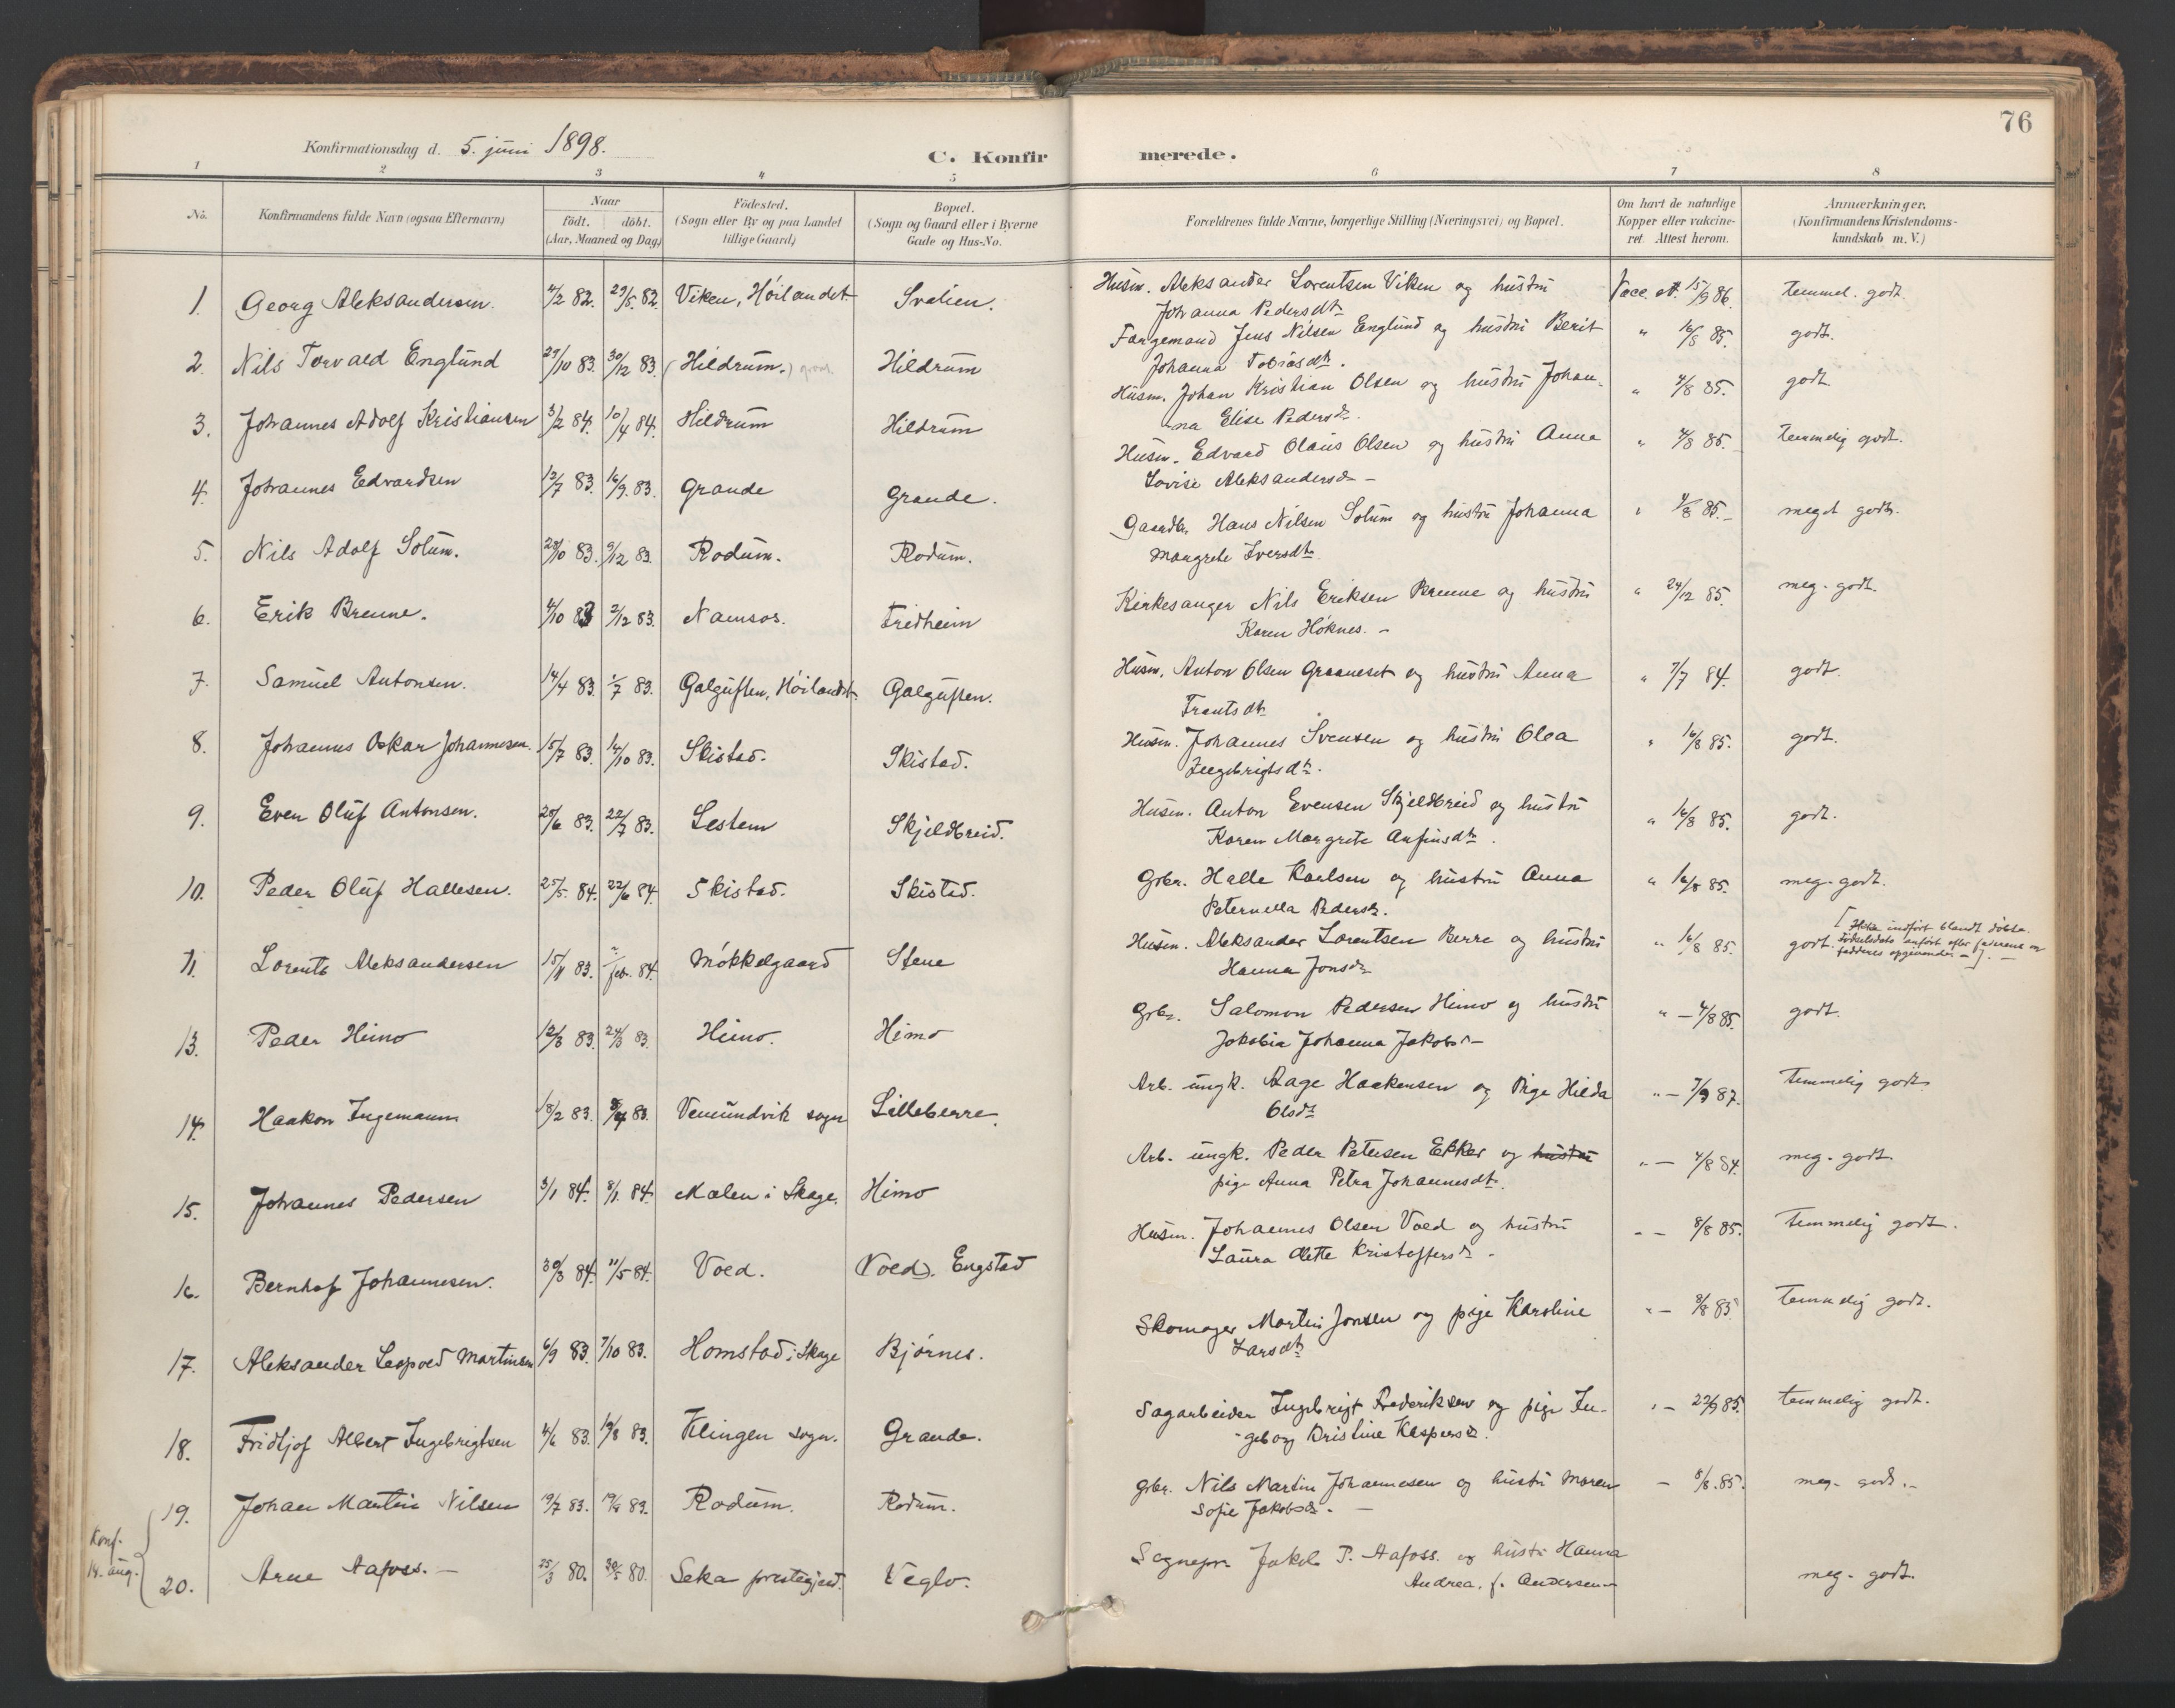 76
Konfirmationsdag d. 5. juni 1898.
C. Konfirmerede.
1 2 3 4 5 6 7 8
No. Konfirmandens fulde Navn (ogsaa Efternavn) Naar födt. döbt. (Aar, Maaned og Dag) Födested. (Sogn eller By og paa Landet tillige Gaard) Bopæl. (Sogn og Gaard eller i Byerne Gade og Hus-No. Forældrenes fulde Navne, borgerlige Stilling (Næringsvei) og Bopæl. Om havt de naturlige Kopper eller vakcineret. Attest herom. Anmærkninger. (Konfirmandens Kristendomskundskab m. V.)
1. Georg Aleksandersen. 4/2 82. 29/5 82. Viken, Höilandet Svalien. Husm. Aleksander Lorentsen Viken og hustru Vacc. att. 15/9 86. temmel. godt.
Johanna Pedersdtr
2. Nils Torvald Englund 29/10 83. 30/12 83. (Hildrum.) Hildrum Fargemand Jens Nilsen Englund og hustru Berit " 16/8 85. godt.
Johanna Tobiasdtr.
3. Johannes Adolf Kristiansen 3/2 84. 10/4 84. Hildrum Hildrum Husm. Johan Kristian Olsen og hustru Johan- " 4/8 85. godt.
na Elise Pedersdr.
4. Johannes Edvardsen 13/7 83. 16/9 83. Grande Grande. Husm. Edvard Olaus Olsen og hustru Anna " 4/8 85. temmelig godt.
Lovise Aleksandersdr
5. Nils Adolf Solum. 28/10 83. 9/12 83. Rodum. Rodum. Gaardbr. Hans Nilsen Solum og hustru Johanna " 4/8 85. meget godt.
Margrete Iversdtr
6. Erik Brenne. 4/10 83 2/12 83. Namsos. Fredheim Kirkesanger Nils Eriksen Brenne og hustru " 24/12 85. meg. godt.
Karen Höknes.
7. Samuel Antonsen. 14/4 83. 1/7 83. Galguften, Höilandet. Galguften. Husm. Anton Olsen Graaneset og hustru Anna " 7/7 84. godt.
Frantsdtr
8. Johannes Oskar Johannesen. 15/7 83. 14/10 83. Skistad. Skistad. Husm. Johannes Svensen og hustru Olea " 16/8 85. godt.
Ingebrigtsdtr.
9. Even Oluf Antonsen. 20/6 83. 22/7 83. Lestem Skjeldbreid. Husm. Anton Evensen Skjeldbreid og hustru " 16/8 85. godt.
Karen Margrete Anfinsdtr.
10. Peder Oluf Hallesen. 25/5. 84. 22/6 84. Skistad. Skistad. Grbr. Halle Karlsen og hustru Anna " 16/8 85. meg. godt.
Peternella Pedersdr.
11. Lorents Aleksandersen 15/11 83. febr. 84. Mökkelgaard Stene Husm. Aleksander Lorentsen Berre og hustru " 16/8 85. godt. [Ikke indfört blandt döbte.
Hanna Jonsdr Födselsdato anfört efter
fadderes opgivender -].
13. Peder Himo 12/3 83. 24/3 83. Himo. Himo Grbr. Salomon Pedersen Himo og hustru " - 4/8 85. godt.
Jakobia Johanna Jakobsdr
14. Haakon Ingemann 18/2 83. 8/4 83. Vemundvik sogn Lilleberre. Arb. ungk. Aage Haakensen og Pige Hilda " - 7/9 87. temmelig godt
Olsdtr
15. Johannes Pedersen 3/1 84. 8/1. 84. Mælen i Skage. Himo Arb. ungk. Peder Petersen Ekker og hustru " - 4/8 84. meg. godt.
pige Anna Petra Johannesdtr.
16. Bernhof Johannesen. 30/3 84. 11/5 84. Voed. (Voed). Engstad Husm. Johannes Olsen Voed og hustru " - 8/8 85. temmelig godt.
Laura Olette Kristoffersdr.
17. Aleksander Leopold Martinsen 6/9 83. 7/10 83. Homstad i Skage Bjørnes. Skomager Martin Jonsen og pige Karoline " - 8/8 85 temmelig godt.
Larsdtr
18. Fridtjof Albert Ingebrigtsen 4/6 83. 19/8 83. Klingen sogn. Grande. Sagarbeider Ingebrigt Frederiksen og pige In- " - 22/9 85. temmelig godt.
geborg Kristine Kaspersdr.
19. Johan Martin Nilsen 19/7 83. 19/8 83. Rodum. Rodum. Grbr. Nils Martin Johannesen og hustru Maren - 8/8. 85. meg. godt.
Sofie Jakobsdr.
Konf.
14. aug.
20. Arne Aafoss. 25/3 80. 30/5 80. Leka prestegjeld. Veglo. Sognepr. Jakob P. Aafoss. og hustru Hanna meg. godt.
Andrea. f. Andersen